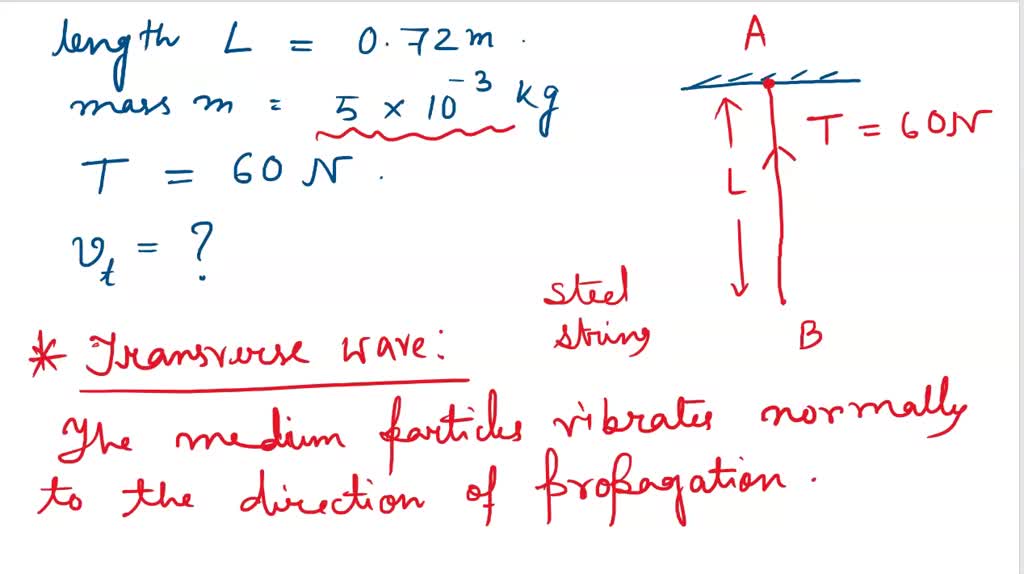 length L = 0.72 m.
mass m = 5 × 10⁻³ kg
T = 60 N.
v_t = ?
A
T = 60N
L
B
steel
string
* Transverse wave:
The medium particles vibrates normally
to the direction of propagation.